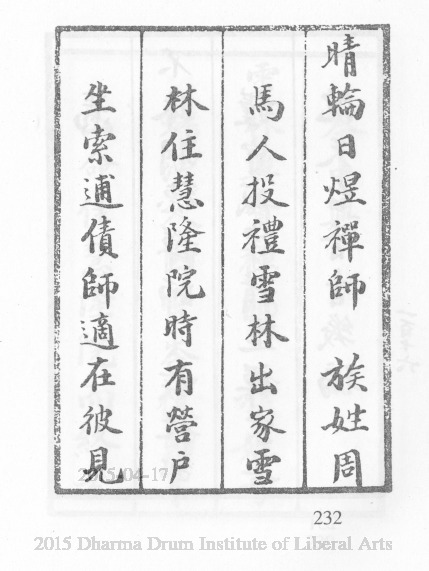 晴輪日煜禪師　族姓周
馬人投禮雪林出家雪
林住慧隆院時有營户
坐索逋債師適在彼見
2015/04-17
232
2015 Dharma Drum Institute of Liberal Arts